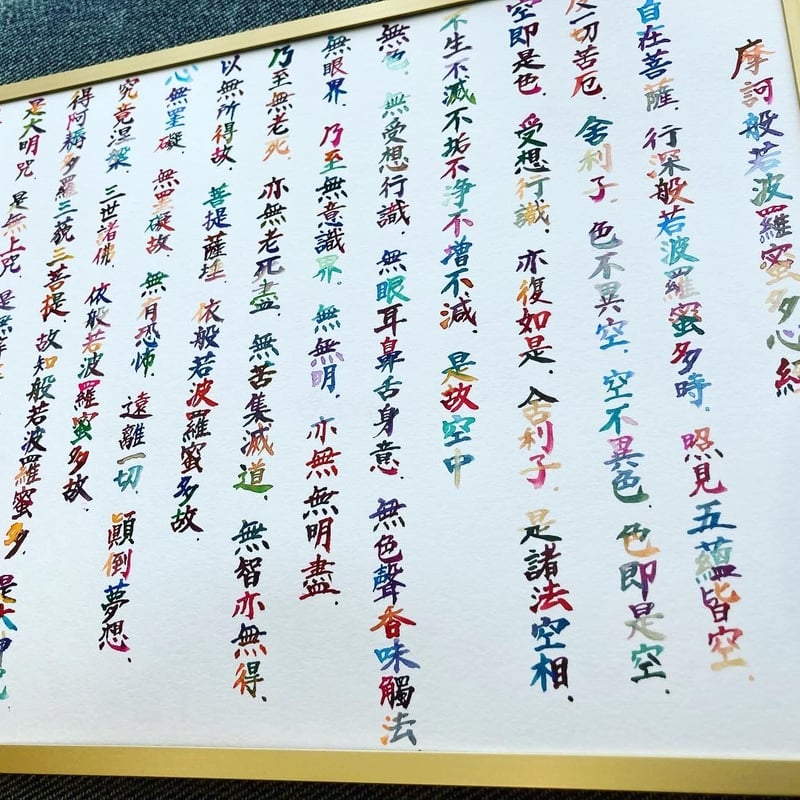 摩訶般若波羅蜜多心經
自在菩薩．行深般若波羅蜜多時．照見五蘊皆空．
一切苦厄．舍利子．色不異空．空不異色．色即是空．
空即是色．受想行識．亦復如是．舍利子．是諸法空相．
不生不滅不垢不淨不增不減．是故空中
無色．無受想行識．無眼耳鼻舌身意．無色聲香味觸法
無眼界．乃至無意識界．無無明．亦無無明盡．
乃至無老死．亦無老死盡．無苦集滅道．無智亦無得．
以無所得故．菩提薩埵．依般若波羅蜜多故．
心無罣礙．無罣礙故．無有恐怖．遠離一切．顛倒夢想．
究竟涅槃．三世諸佛．依般若波羅蜜多故．
得阿耨多羅三藐三菩提．故知般若波羅蜜多．是大神咒
是大明咒．是無上咒．